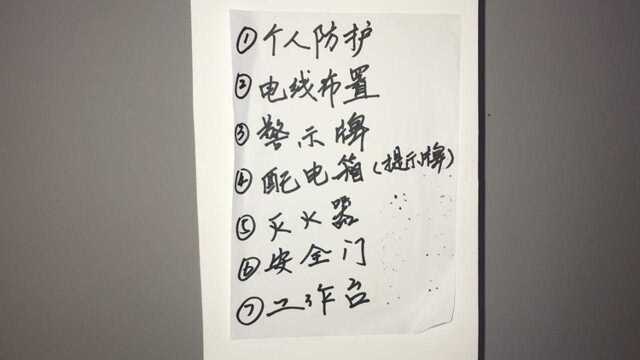 ①个人防护
②电线布置
③警示牌
④配电箱(提示牌)
⑤灭火器
⑥安全门
⑦工作台